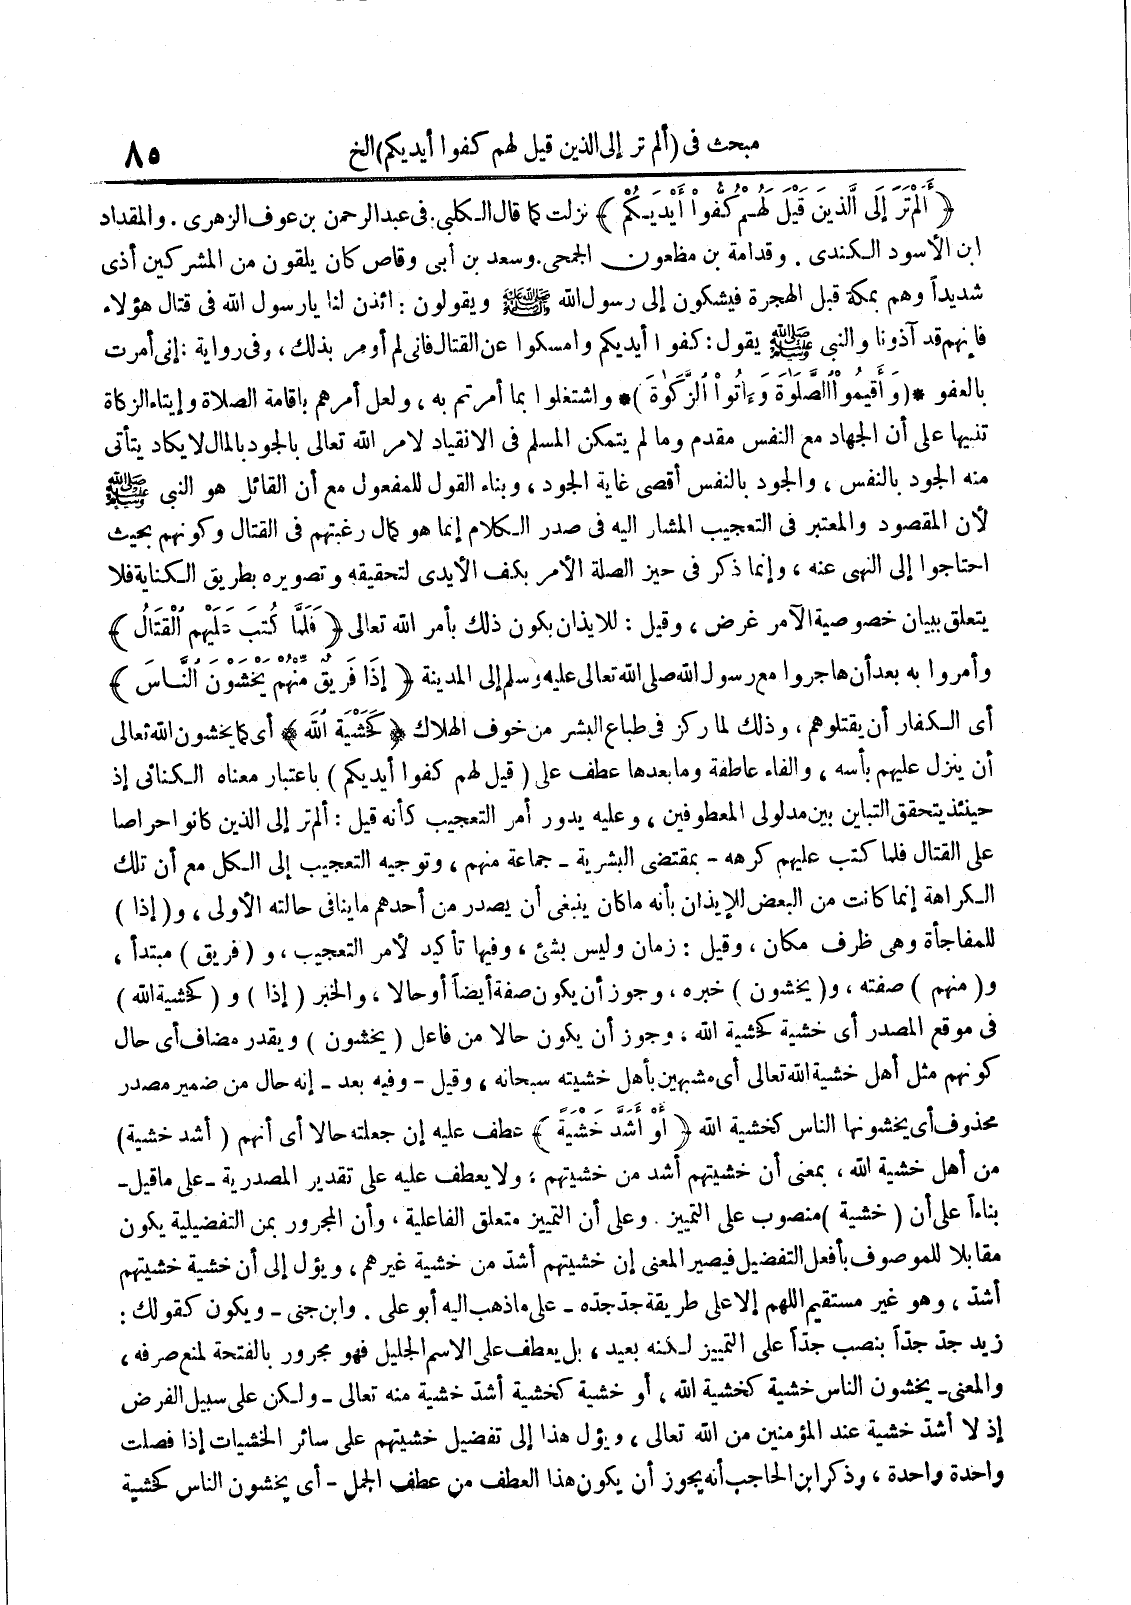 مبحث فى (ألم تر إلى الذين قيل لهم كفوا أيديكم) الخ ٨٥
﴿ أَلَمْ تَرَ إِلَى الَّذِينَ قِيلَ لَهُمْ كُفُّواْ أَيْدِيَكُمْ ﴾ نزلت كما قال الكلبى. فى عبد الرحمن بن عوف الزهرى . والمقداد
ابن الأسود الكندى . وقدامة بن مظعون الجمحى. وسعد بن أبى وقاص كان يلقون من المشركين أذى
شديداً وهم بمكة قبل الهجرة فيشكون إلى رسول الله ﷺ ويقولون : ائذن لنا يارسول الله فى قتال هؤلاء
فإنهم قد آذونا والنبى ﷺ يقول : كفوا أيديكم وامسكوا عن القتال فانى لم أومر بذلك ، وفى رواية : إنى أمرت
بالعفو *( وَأَقِيمُواْ ٱلصَّلَوٰةَ وَءَاتُواْ ٱلزَّكَوٰةَ )* واشتغلوا بما أمرتم به ، ولعل أمرهم باقامة الصلاة وإيتاء الزكاة
تنبيها على أن الجهاد مع النفس مقدم وما لم يتمكن المسلم فى الانقياد لامر الله تعالى بالجود بالمال لا يكاد يتأتى
منه الجود بالنفس ، والجود بالنفس أقصى غاية الجود ، وبناء القول للمفعول مع أن القائل هو النبى ﷺ
لأن المقصود والمعتبر فى التعجيب المشار اليه فى صدر الكلام إنما هو كمال رغبتهم فى القتال وكونهم بحيث
احتاجوا إلى النهى عنه ، وإنما ذكر فى حيز الصلة الأمر بكف الأيدى لتحقيقه وتصويره بطريق الكناية فلا
يتعلق ببيان خصوصية الآمر غرض ، وقيل : للايذان بكون ذلك بأمر الله تعالى ﴿ فَلَمَّا كُتِبَ عَلَيْهِمُ ٱلْقِتَالُ ﴾
وأمروا به بعد أن هاجروا مع رسول الله صلى الله تعالى عليه وسلم إلى المدينة ﴿ إِذَا فَرِيقٌ مِّنْهُمْ يَخْشَوْنَ ٱلنَّاسَ ﴾
أى الكفار أن يقتلوهم ، وذلك لما ركز فى طباع البشر من خوف الهلاك ﴿ كَخَشْيَةِ ٱللَّهِ ﴾ أى كما يخشون الله تعالى
أن ينزل عليهم بأسه ، والفاء عاطفة وما بعدها عطف على ( قيل لهم كفوا أيديكم ) باعتبار معناه الكنائى إذ
حينئذ يتحقق التباين بين مدلولى المعطوفين ، وعليه يدور أمر التعجيب كأنه قيل : ألم تر إلى الذين كانوا حراصا
على القتال فلما كتب عليهم كرهه - بمقتضى البشرية - جماعة منهم ، وتوجيه التعجيب إلى الكل مع أن تلك
الكراهة إنما كانت من البعض للإيذان بأنه ما كان ينبغى أن يصدر من أحدهم ما ينافى حالته الأولى ، و( إذا )
للمفاجأة وهى ظرف مكان ، وقيل : زمان وليس بشئ ، وفيها تأكيد لأمر التعجيب ، و ( فريق ) مبتدأ ،
و( منهم ) صفته ، و( يخشون ) خبره ، وجوز أن يكون صفة أيضاً أو حالا ، والخبر ( إذا ) و ( كخشية الله )
فى موقع المصدر أى خشية كخشية الله ، وجوز أن يكون حالا من فاعل ( يخشون ) ويقدر مضاف أى حال
كونهم مثل أهل خشية الله تعالى أى مشبهين بأهل خشيته سبحانه ، وقيل - وفيه بعد - إنه حال من ضمير مصدر
محذوف أى يخشونها الناس كخشية الله ﴿ أَوْ أَشَدَّ خَشْيَةً ﴾ عطف عليه إن جعلته حالا أى أنهم ( أشد خشية)
من أهل خشية الله ، بمعنى أن خشيتهم أشد من خشيتهم ؛ ولا يعطف عليه على تقدير المصدرية - على ماقيل-
بناءاً على أن ( خشية ) منصوب على التمييز . وعلى أن التمييز متعلق الفاعلية ، وأن المجرور بمن التفضيلية يكون
مقابلا للموصوف بأفعل التفضيل فيصير المعنى إن خشيتهم أشدّ من خشية غيرهم ، ويؤل إلى أن خشية خشيتهم
أشدّ ، وهو غير مستقيم اللهم إلا على طريقة جدّ جدّه - على ما ذهب اليه أبو على . وابن جنى - ويكون كقولك :
زيد جدّ جدّاً بنصب جدّاً على التمييز لكنه بعيد ، بل يعطف على الاسم الجليل فهو مجرور بالفتحة لمنع صرفه ،
والمعنى- يخشون الناس خشية كخشية الله ، أو خشية كخشية أشدّ خشية منه تعالى - ولكن على سبيل الفرض
إذ لا أشدّ خشية عند المؤمنين من الله تعالى ، ويؤل هذا إلى تفضيل خشيتهم على سائر الخشيات إذا فصلت
واحدة واحدة ، وذكر ابن الحاجب أنه يجوز أن يكون هذا العطف من عطف الجمل - أى يخشون الناس كخشية